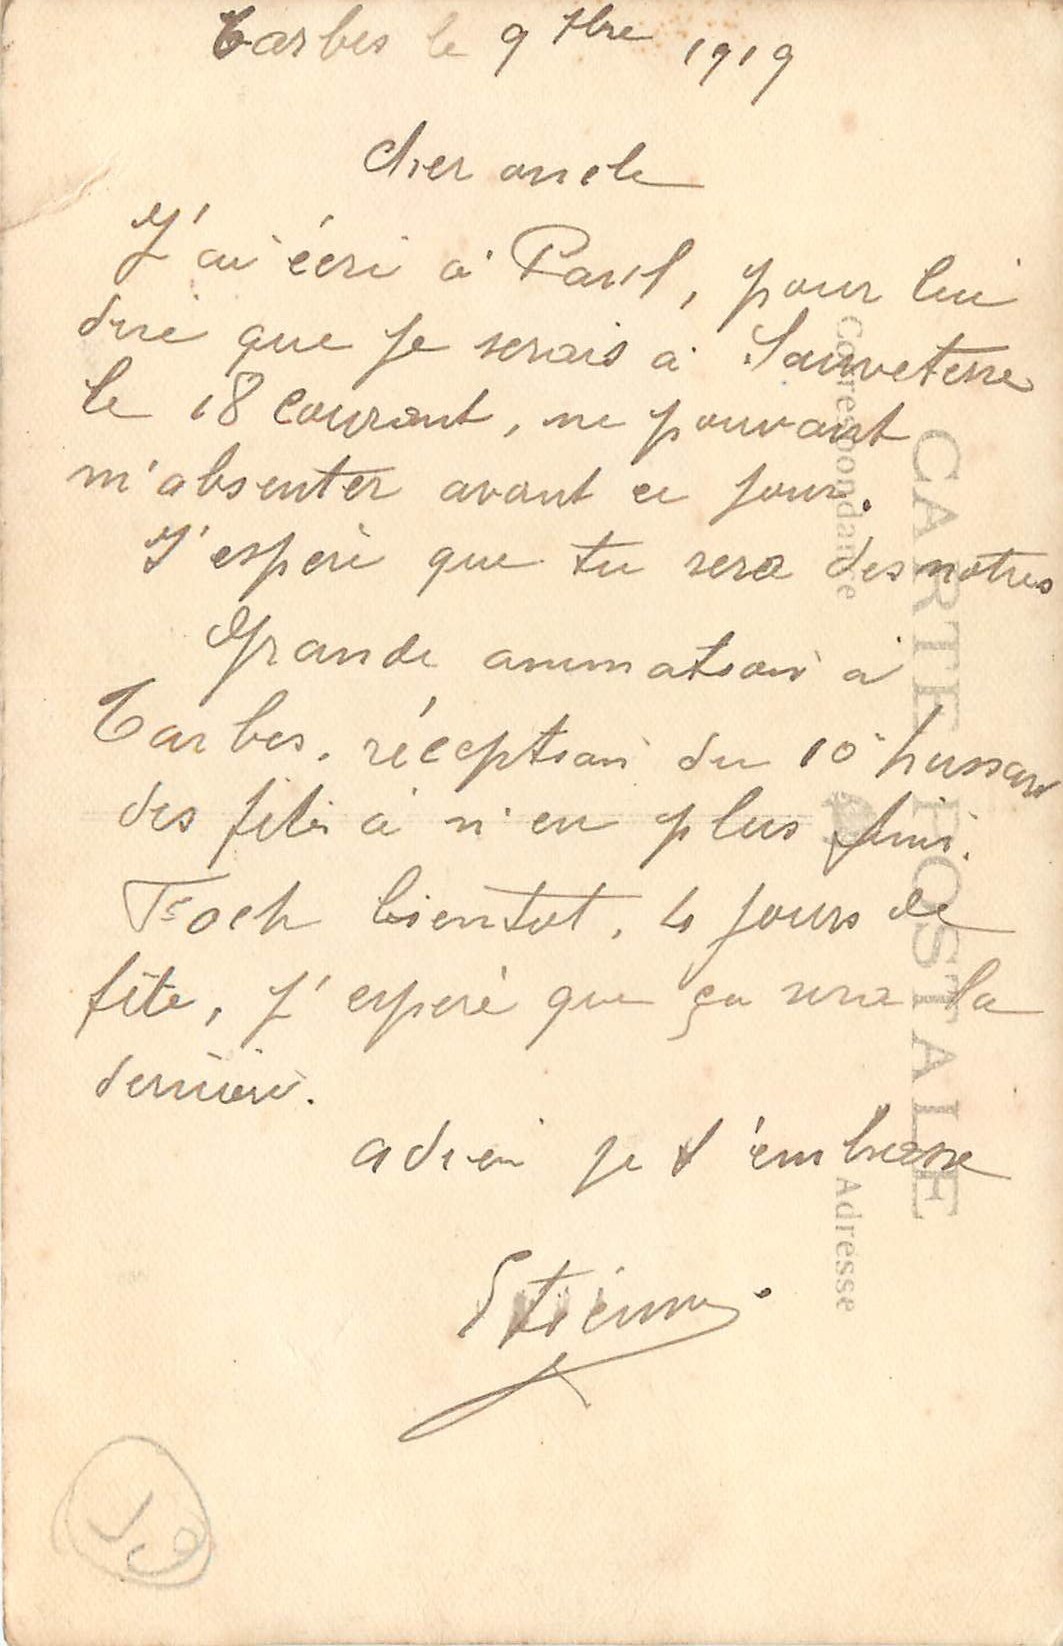 Tarbes le 9 7bre 1919
Cher oncle
J'ai écri à Paris, pour lui
dire que je serais à Sauveterre
le 18 courant, ne pouvant
m'absenter avant ce jour.
J'espère que tu sera des notres
Grande animation à
Tarbes. réception du 10e hussard
des fêtes à n'en plus finir.
Foch bientot. 4 jours de
fête, j'espère que ça sera la
dernière.
adieu je t'embrasse
Etienne.
CARTE POSTALE
Correspondance
Adresse